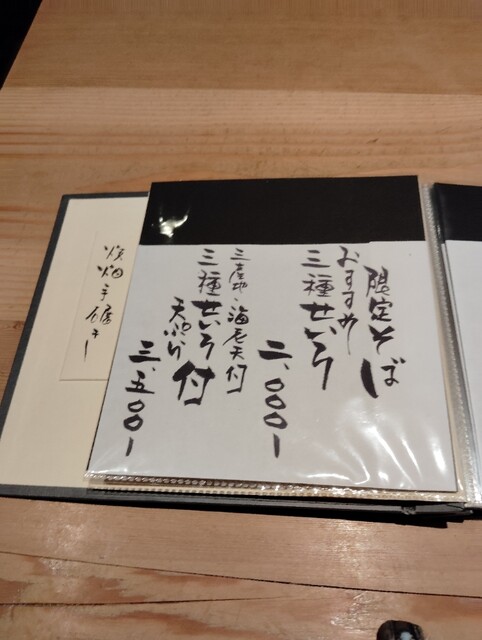 限定そば
おすすめ
三種せいろ
二、〇〇〇ー
三産地・海老天付
三種せいろ
天ぷら付
三、五〇〇ー
焼畑手碾き